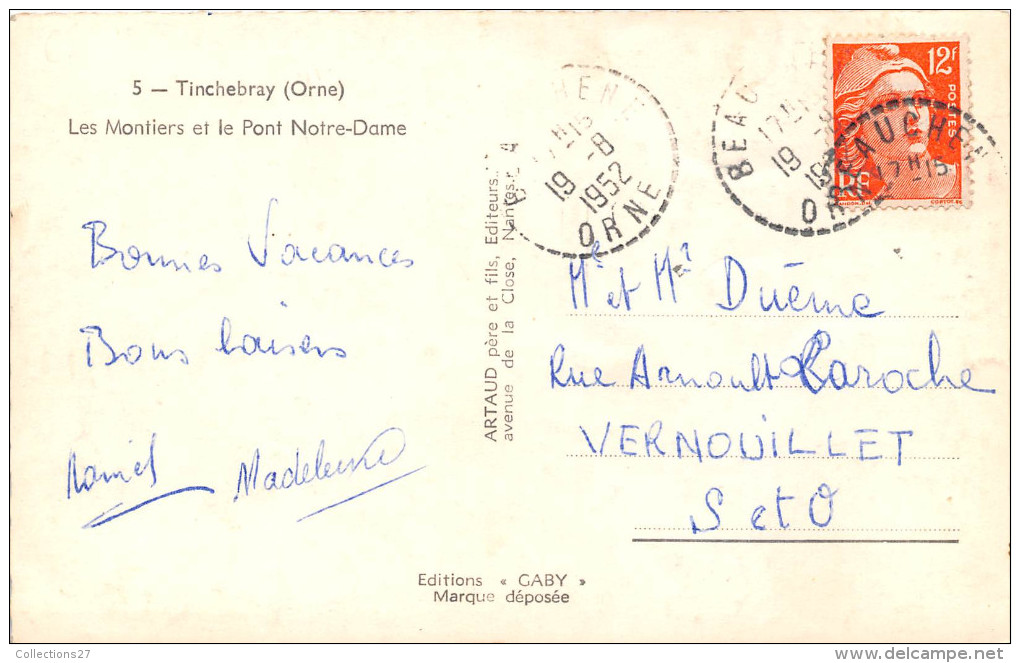 5 — Tinchebray (Orne)
Les Montiers et le Pont Notre-Dame
Bonnes Vacances
Bons baisers
Daniel Madeleine
ARTAUD père et fils, Editeurs.
avenue de la Close, Nantes.
Editions « GABY »
Marque déposée
17H15
19 -8
1952
ORNE
BEAUCHEN
17H15
19
ORNE
BEAUCHEN
17H15
12F
POSTES
RF
Mr et Me Duême
Rue Arnoult Laroche
VERNOUILLET
S et O
-Collections27
www.delcampe.net